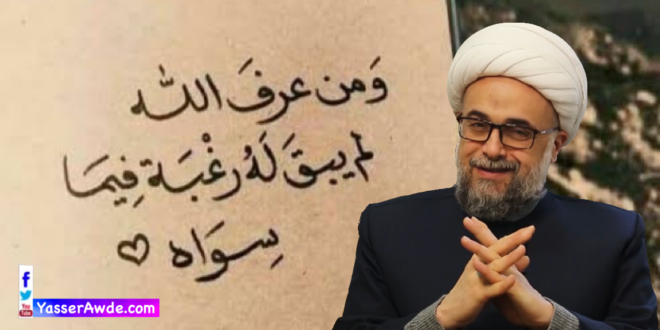 وَمن عرفَ الله
لم يبقَ لَهُ رغْبَة فِيمَا
سِوَاه
f
You
Tube
YasserAwde.com